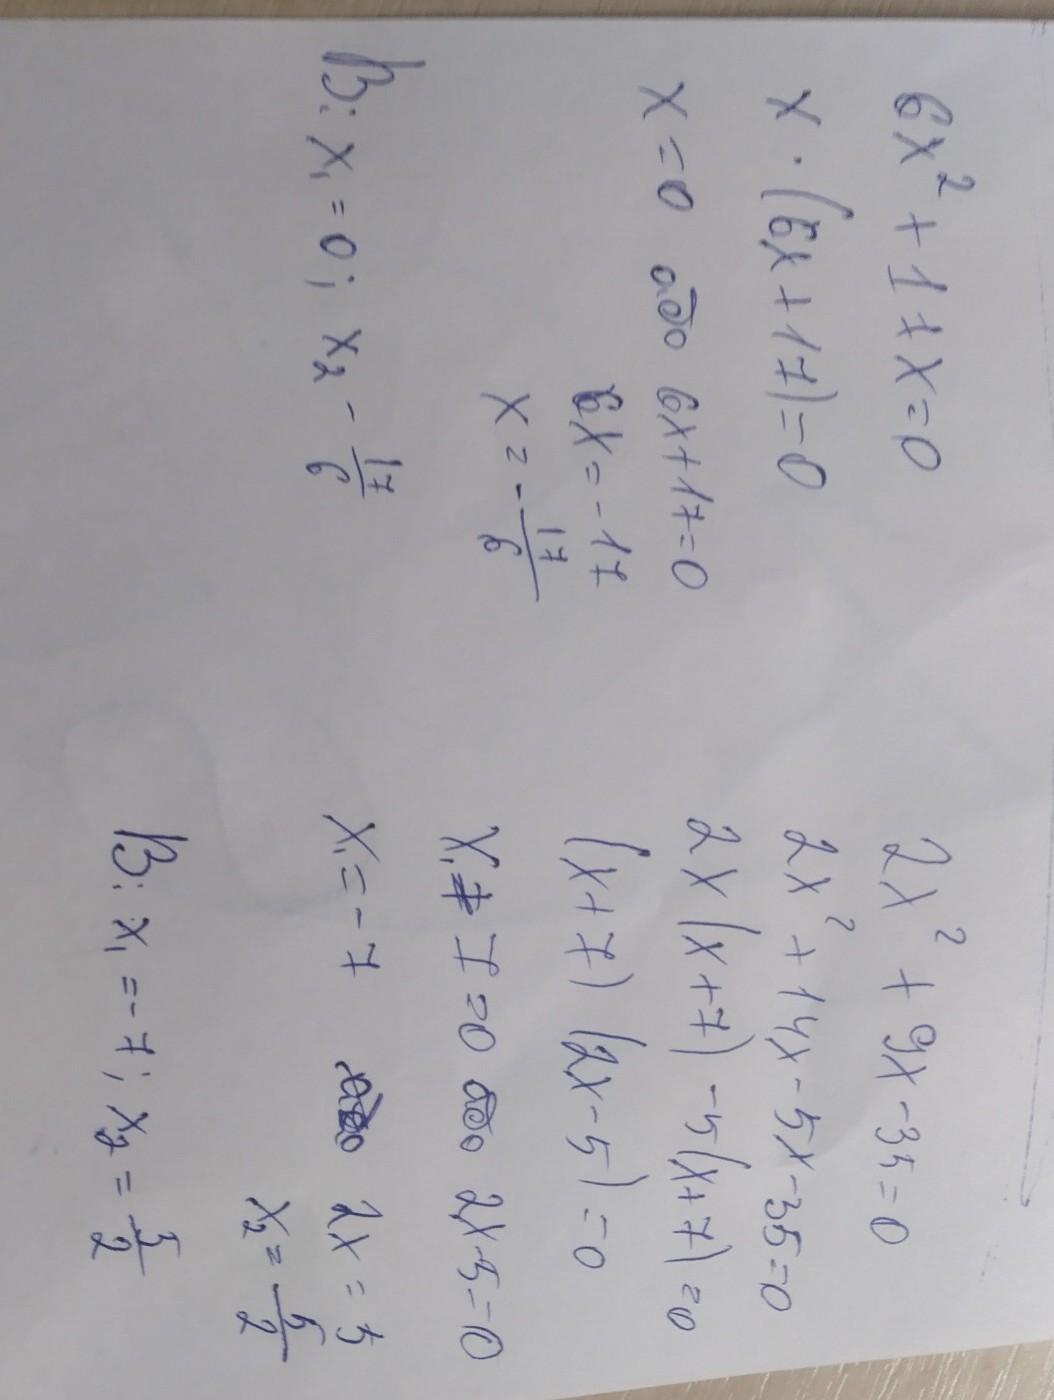 6x² + 17x = 0
x · (6x + 17) = 0
x = 0 або 6x + 17 = 0
6x = -17
x = - 17/6
В: x₁ = 0; x₂ - 17/6
2x² + 9x - 35 = 0
2x² + 14x - 5x - 35 = 0
2x (x + 7) - 5(x + 7) = 0
(x + 7) (2x - 5) = 0
7 = 0 або 2x - 5 = 0
x₁ = -7 або 2x = 5
x₂ = 5/2
В: x₁ = -7; x₂ = 5/2